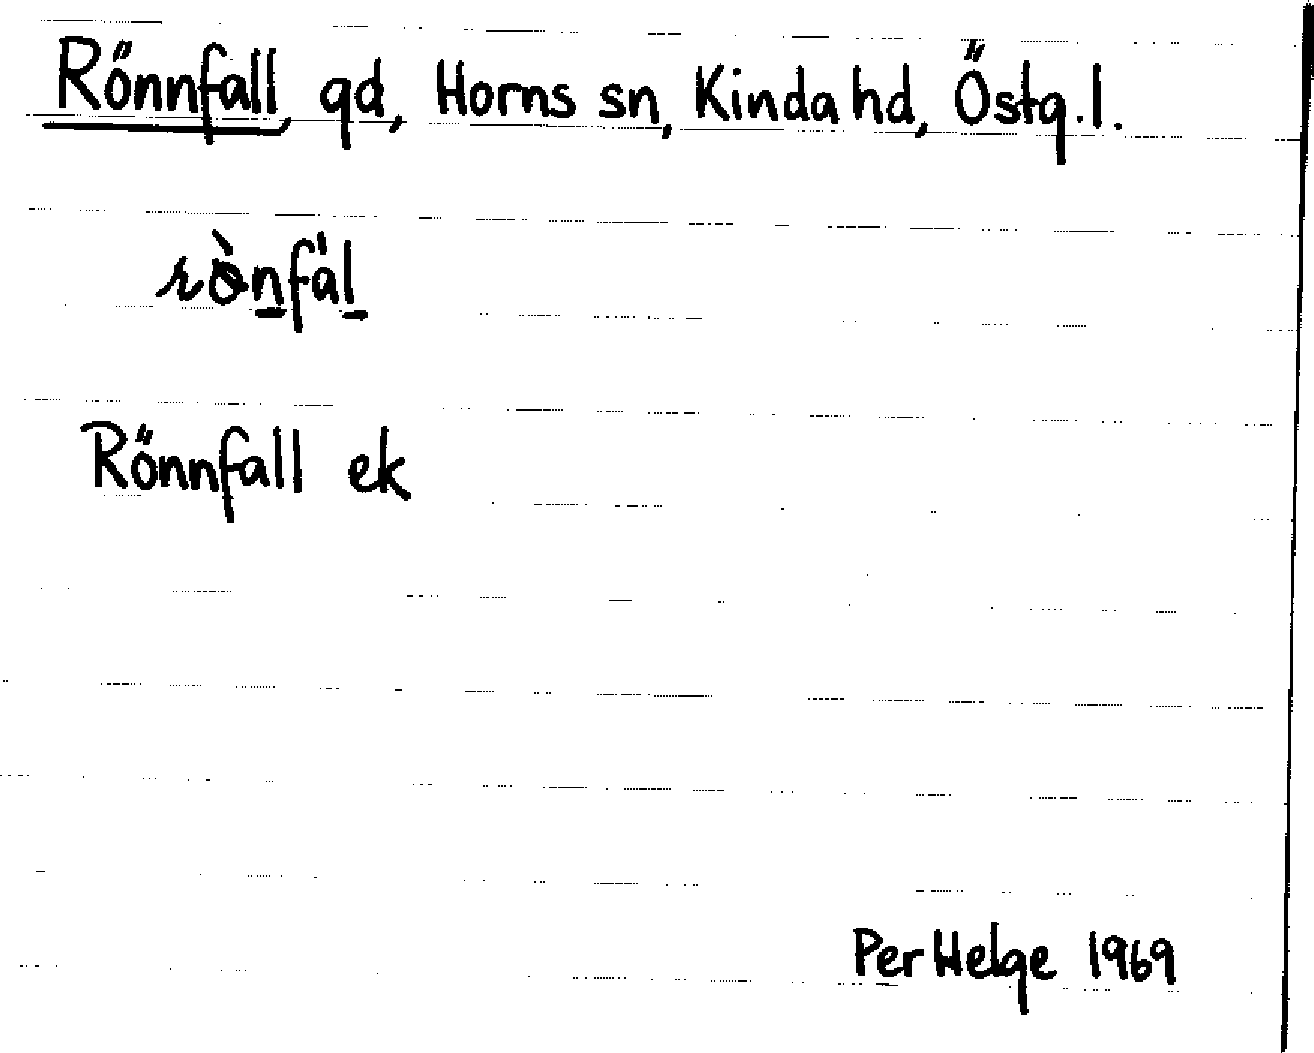 Rönnfall, gd, Horns sn, Kinda hd, Östg.l.
rò̈nfál
Rönnfall ek
Per Helge 1969